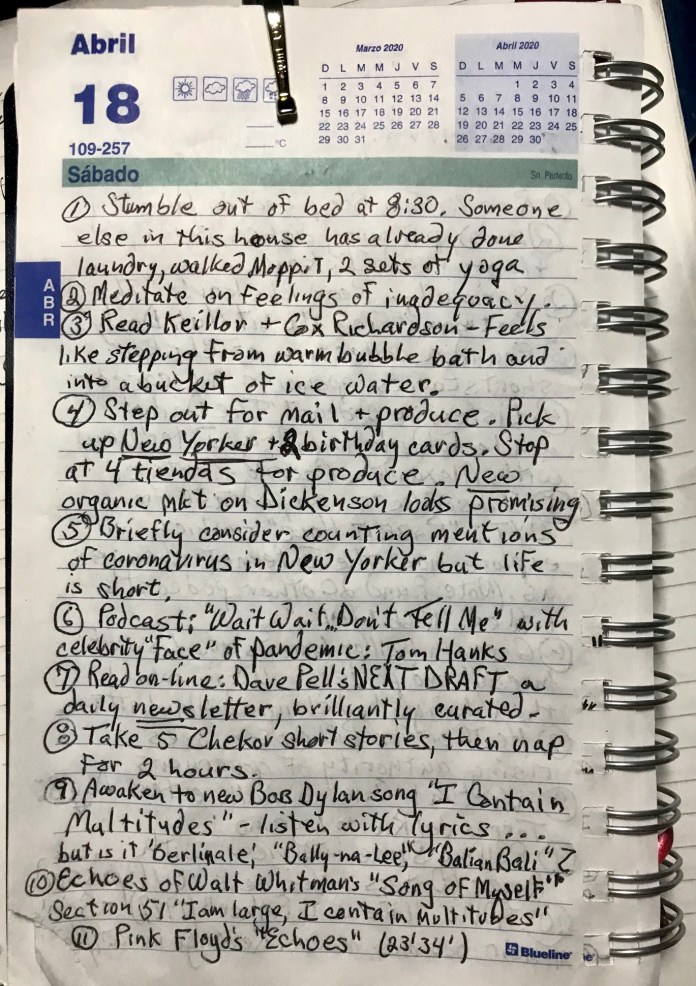 Abril
18
109-257
°C
Marzo 2020
D L M M J V S
1 2 3 4 5 6 7
8 9 10 11 12 13 14
15 16 17 18 19 20 21
22 23 24 25 26 27 28
29 30 31
Abril 2020
D L M M J V S
1 2 3 4
5 6 7 8 9 10 11
12 13 14 15 16 17 18
19 20 21 22 23 24 25
26 27 28 29 30
Sábado
Sn. Perfecto
ABR
① Stumble out of bed at 8:30. Someone
else in this house has already done
laundry, walked Moppit, 2 sets of yoga
② Meditate on feelings of inadequacy.
③ Read Keillor + Cox Richardson - Feels
like stepping from warm bubble bath and
into a bucket of ice water.
④ Step out for mail + produce. Pick
up New Yorker + 2 birthday cards. Stop
at 4 tiendas for produce. New
organic mkt on Dickenson looks promising
⑤ Briefly consider counting mentions
of coronavirus in New Yorker but life
is short.
⑥ Podcast: "Wait Wait..Don't Tell Me" with
celebrity "face" of pandemic: Tom Hanks
⑦ Read on-line: Dave Pell's NEXT DRAFT a
daily newsletter, brilliantly curated-
⑧ Take 5 Chekov short stories, then nap
for 2 hours.
⑨ Awaken to new Bob Dylan song "I Contain
Multitudes" - listen with lyrics ...
but is it 'Berlinale', "Bally-na-Lee", "Balian Bali"?
⑩ Echoes of Walt Whitman's "Song of Myself"
Section 51 "I am large, I contain Multitudes"
⑪ Pink Floyd's "Echoes" (23'34')
Blueline